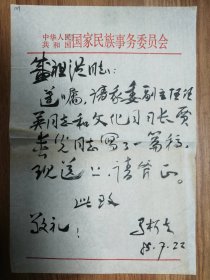 中华人民
共和国 国家民族事务委员会
同志:
遵嘱,请我委副主任任
英同志和文化司司长贾
春光同志写了一篇稿,
现送上,请斧正。
此致
敬礼!
85.7.22